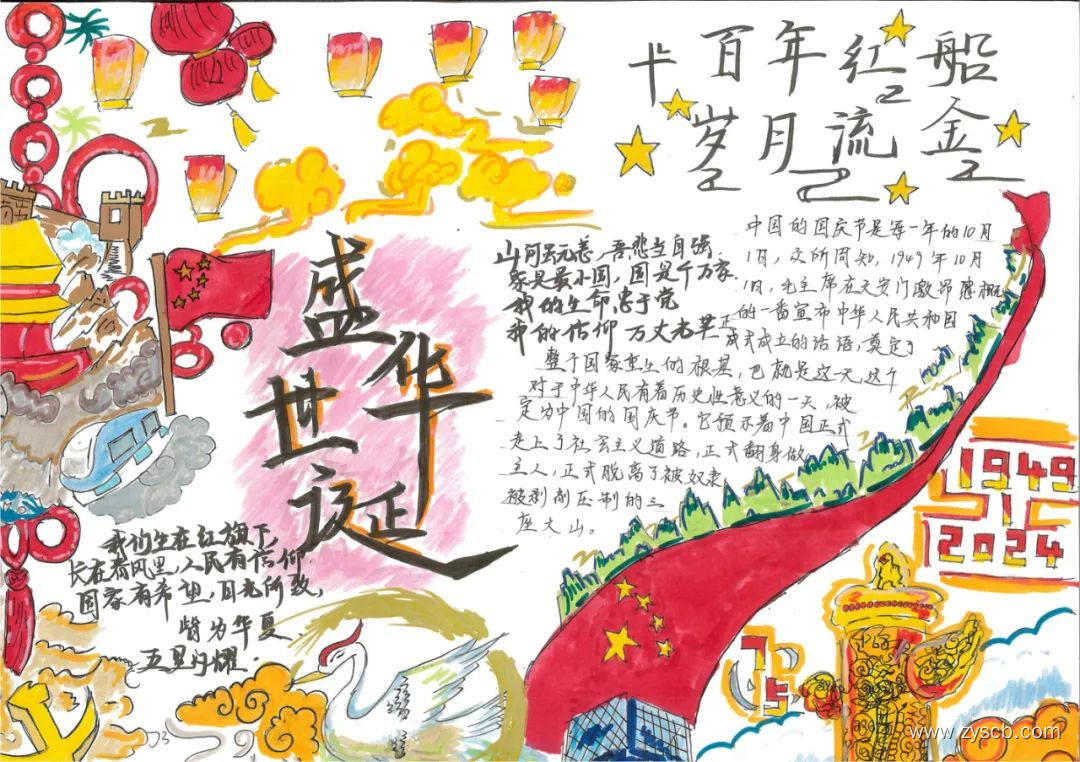 百年红船
岁月流金
盛世华诞
山河云无恙，吾悲当自强
家是最小国，国是千万家
我的生命忠于党
我的信仰 万丈光芒
中国的国庆节是每一年的10月
1日，众所周知，1949年10月
1日，毛主席在天安门激昂慷慨
的一番宣布中华人民共和国
正式成立的话语，奠定了
整个国家重生的根基，也就是这一天，这个
对于中华人民有着历史性意义的一天，被
定为中国的国庆节。它预示着中国正式
走上了社会主义道路，正式翻身做
主人，正式脱离了被奴隶
被剥削压制的三
座大山。
我们生在红旗下，
长在春风里，人民有信仰
国家有希望，目光所致，
皆为华夏
五星闪耀.
1949
2024
75
www.zyscb.com